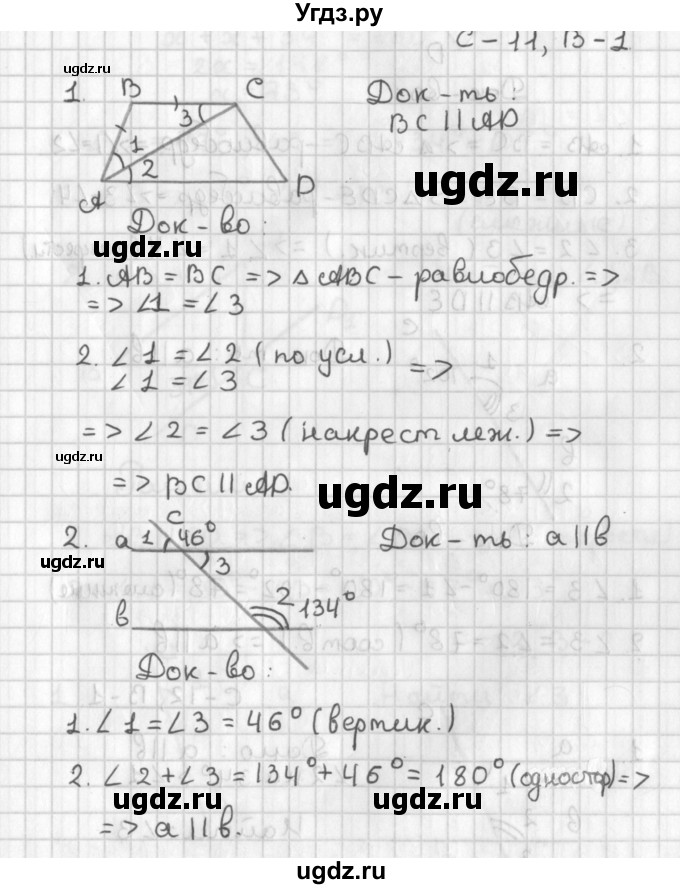 Угдз.ру
С-11, В-1
www.ugdz.ru
1.
B
C
3
1
2
A
D
Док-ть:
BC || AD
ugdz.ru
Док-во:
ugdz.ru
1. AB = BC => △ ABC - равнобедр. =>
=> ∠1 = ∠3
2. ∠1 = ∠2 (по усл.) =>
∠1 = ∠3
=> ∠2 = ∠3 (накрест леж.) =>
www.ugdz.ru
=> BC || AD.
ugdz.ru
2.
c
a
1
46°
3
Док-ть: a || b
www.ugdz.ru
b
2
134°
Док-во:
ugdz.ru
1. ∠1 = ∠3 = 46° (вертик.)
2. ∠2 + ∠3 = 134° + 46° = 180° (одностор) =>
ugdz.ru
ugdz.ru
=> a || b.
ugdz.ru